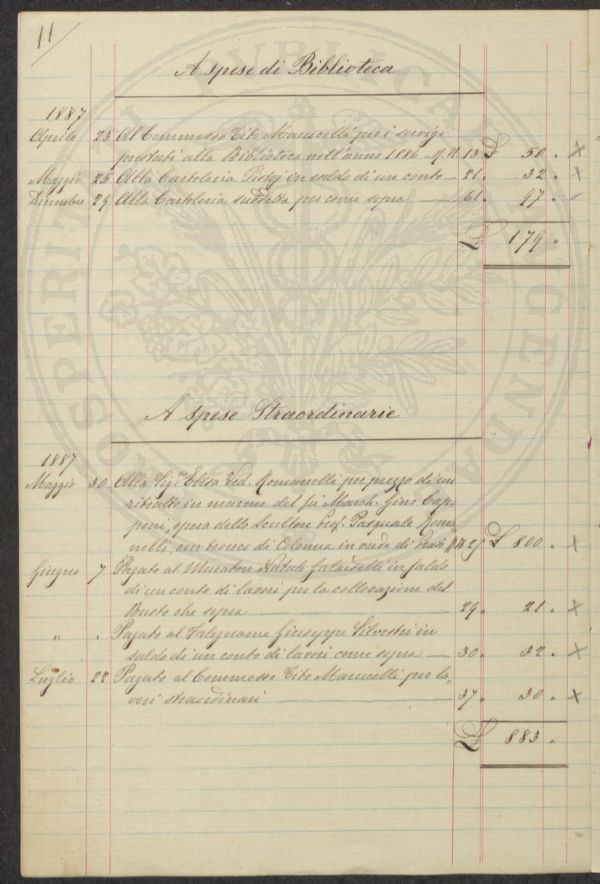 11
A spese di Biblioteca
1887
Aprile 23 Al Commesso Tito Marucelli per i servigi
prestati alla Biblioteca nell'anno 1886 - f. N. 13 £ 50. ×
Maggio 25 Alla Cartoleria in saldo di un conto - 21. 32. ×
Dicembre 29 Alla Cartoleria suddetta per come sopra — 61. 97. -
£ 179.
A spese Straordinarie
1887
Maggio 30 Alla Sig.ra Elisa Ved. Romanelli per prezzo di un
ritratto in marmo del fù March. Gino Cap-
poni, opera dello Scultore Prof. Pasquale Roma
nelli, con tronco di Colonna in verde di Prato f. N. 25 £ 800. ×
Giugno 7 Pagato al Muratore Natale in saldo
di un conto di lavori per la collocazione del
Busto che sopra — 29. 21. ×
" . Pagato al Falegname Giuseppe Silvestri in
saldo di un conto di lavori come sopra — 30. 32. ×
Luglio 22 Pagato al Commesso Tito Marucelli per la-
vori straordinari — 37. 30. ×
£ 883.
PROSPERITATI PUBLICAE AUGENDAE